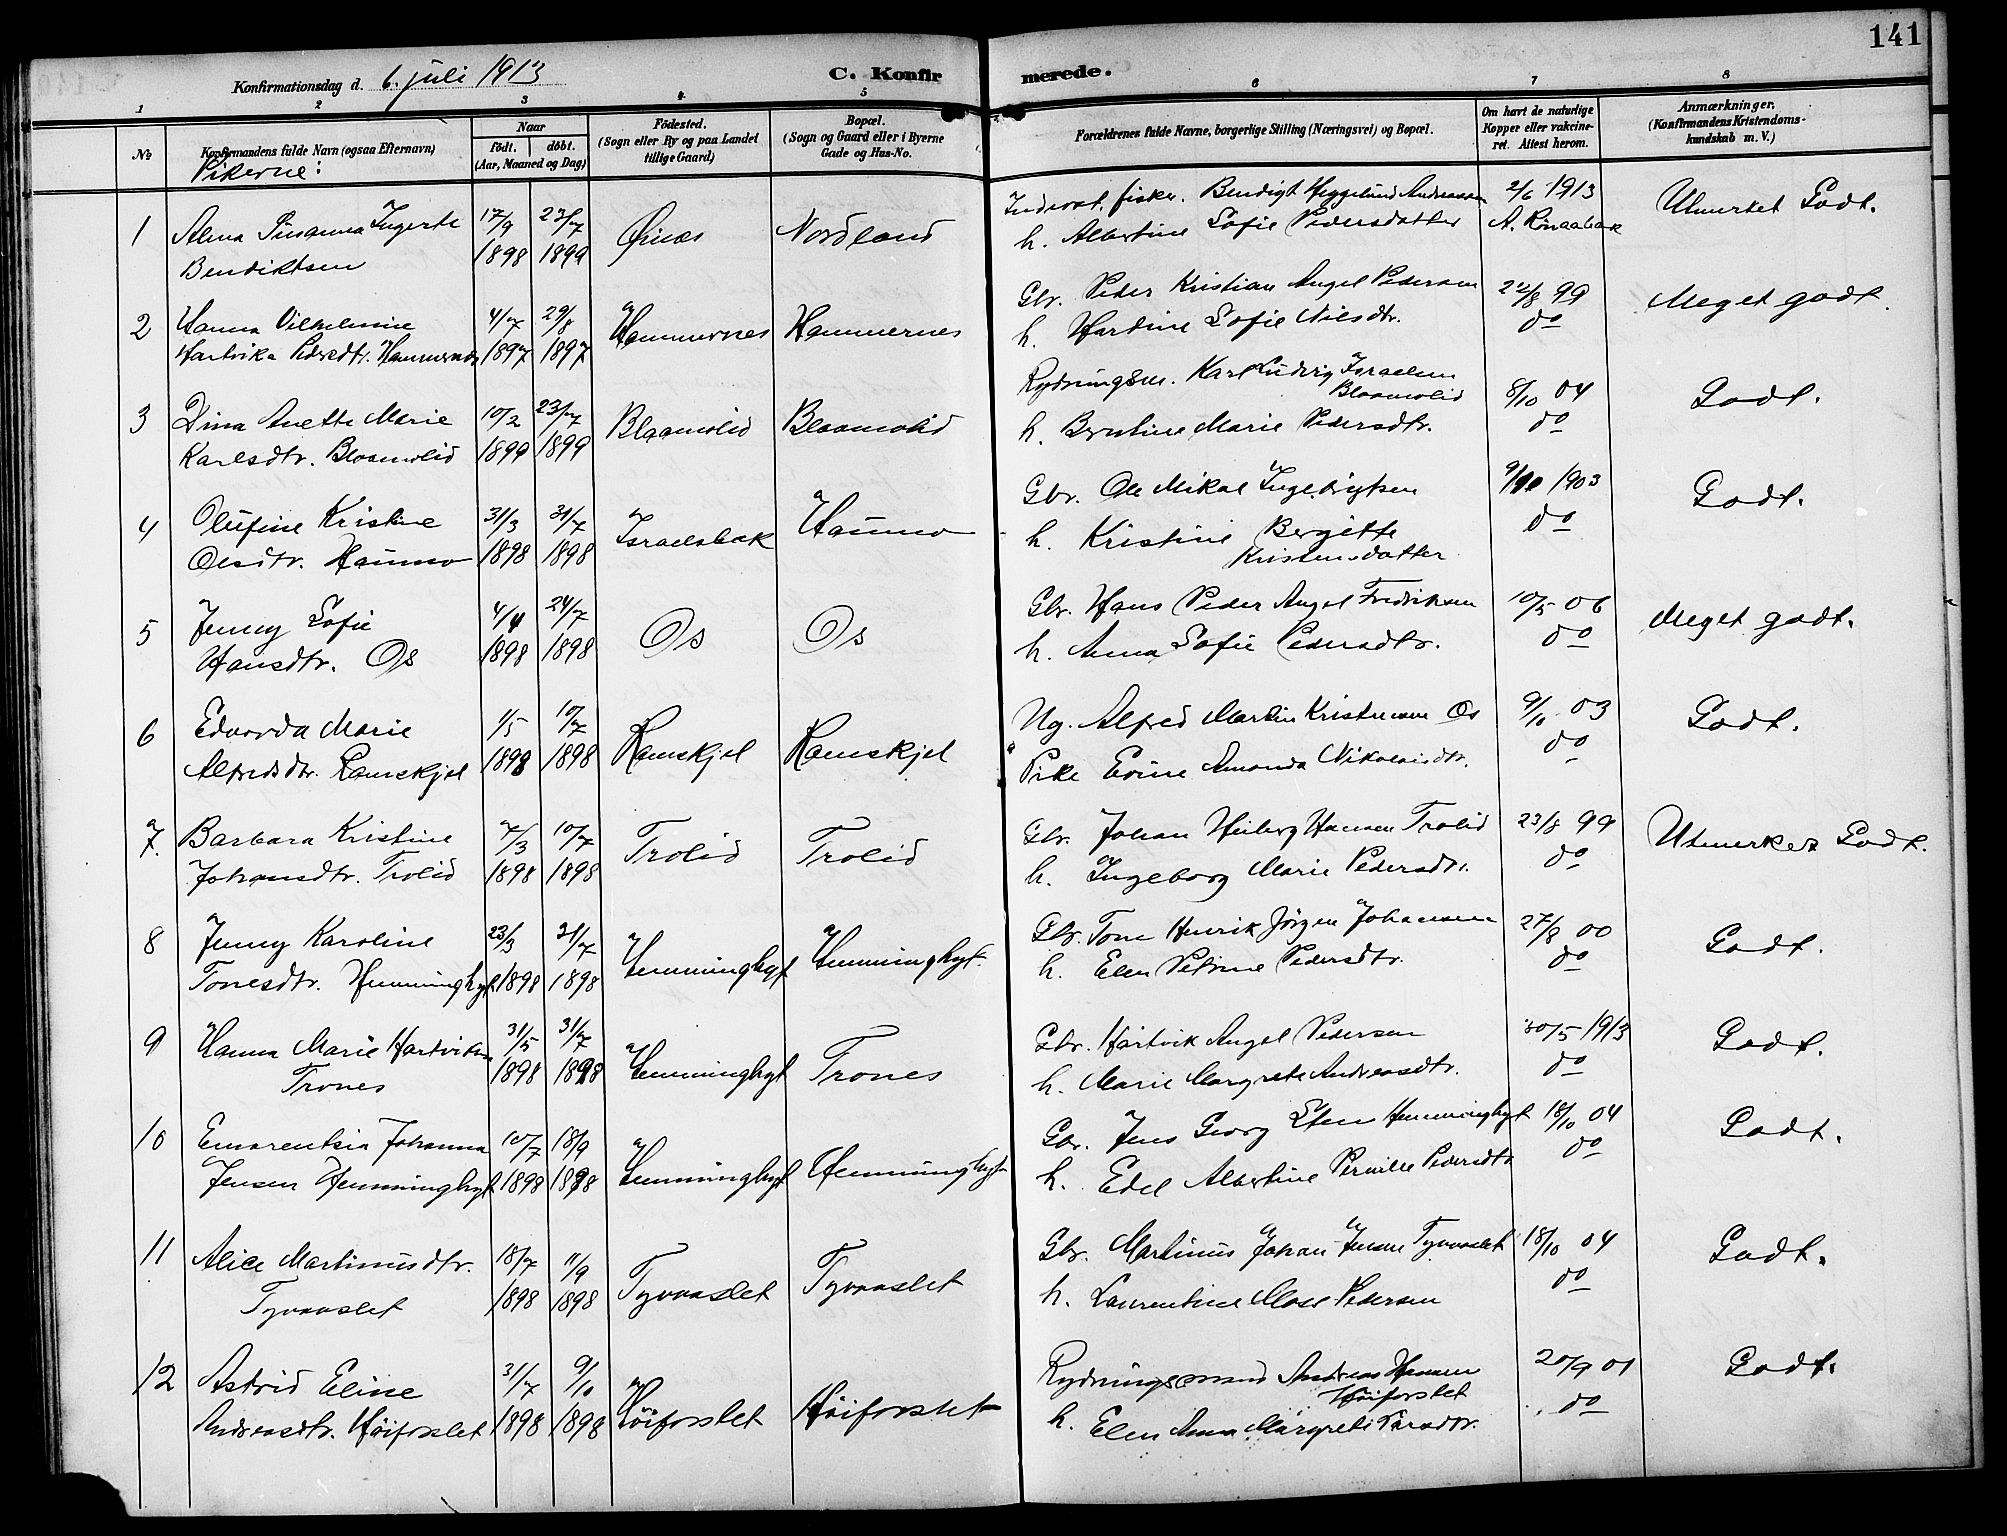 141
Konfirmationsdag d. 6. juli 1913
C. Konfir merede.
1 2 3 4 5 6 7 8
No
Konfirmandens fulde Navn (ogsaa Efternavn)
Naar
födt. döbt.
(Aar, Maaned og Dag)
Födested.
(Sogn eller By og paa Landet
tillige Gaard)
Bopæl.
(Sogn og Gaard eller i Byerne
Gade og Hus-No.
Forældrenes fulde Navne, borgerlige Stilling (Næringsvei) og Bopæl.
Om havt de naturlige
Kopper eller vakcine-
ret. Attest herom.
Anmærkninger.
(Konfirmandens Kristendoms-
kundskab m. V.)
Pikerne:
1 Alma Susanna Ingerte 17/9 23/7 Øinæs Nordland Inderst, fisker. Bendigt Heggelund Andreassen 2/6 1913 Utmerket Godt.
Bendiktsen 1898 1899 h. Albertine Sofie Pedersdatter
2 Hanna Vilhelmine 4/7 29/8 Hammernes Hammernes Gbr. Peder Kristian Angel Pedersen 22/8 99 Meget godt.
Hartvika Pedersdtr. Hammernes 1897 1897 h. Hardine Sofie Nilsdtr. do
3 Dina Anette Marie 10/2 23/7 Blaamolid Blaamolid Rydningsm. Karl Ludvig Israelsen Blaamolid 8/10 04 Godt.
Karlsdtr. Blaamolid 1899 1899 h. Berntine Marie Pedersdtr. do
4 Olufine Kristine 31/3 31/7 Israelsbak Haumo Gbr. Ole Mikal Ingebrigtsen 9/10 1903 Godt.
Olsdtr. Haumo 1898 1898 h. Kristine Bergitte do
Kristensdatter
5 Jenny Sofie 4/4 24/7 Os Os Gbr. Hans Peder Angel Fredriksen 10/5 06 Meget godt.
Hansdtr. Os 1898 1898 h. Anna Sofie Pedersdtr. do
6 Edvarda Marie 1/5 10/7 Ramskjel Ramskjel Ug. Alfred Martin Kristensen Os 9/10 03 Godt.
Alfredsdtr. Ramskjel 1898 1898 Pike Evine Amanda Nikolaisdtr. do
7. Barbara Kristine 7/3 10/7 Trolid Trolid Gbr. Johan Hiberg Hansen Trolid 23/8 99 Utmerket Godt.
Johansdtr. Trolid 1898 1898 h. Ingeborg Marie Pedersdtr. do
8 Jenny Karoline 23/3 31/7 Hemminghyt Hemminghyt. Gbr. Tone Henrik Jörgen Johansen 27/8 00 Godt.
Tonesdtr. Hemminghyt 1898 1898 h. Elen Petrine Pedersdtr. do
9 Hanna Marie Hartviksen 31/5 31/7 Hemminghyt Trones Gbr. Hartvik Angel Pedersen 30/5 1913 Godt.
Trones 1898 1898 h. Marie Margrete Andreasdtr. do
10 Emerentsia Johanna 10/7 18/9 Hemminghyt Hemminghyt Gbr. Jens Georg Sten Hemminghyt 18/10 04 Godt.
Jensen Hemminghyt 1898 1898 h. Edel Albertine Pernille Pedersdtr do
11 Alice Martinusdtr. 18/7 11/9 Tyvaaslet Tyvaaslet Gbr. Martinus Johan Jensen Tyvaaslet 18/10 04 Godt.
Tyvaaslet 1898 1898 h. Laurentine Pedersen do
12 Astrid Eline 31/7 9/10 Höiforslet Höiforslet Rydningsmand Andreas Hansen Höiforslet 20/9 01 Godt.
Andreasdtr. Höiforslet 1898 1898 h. Elen Anna Margrete Larsdtr. do